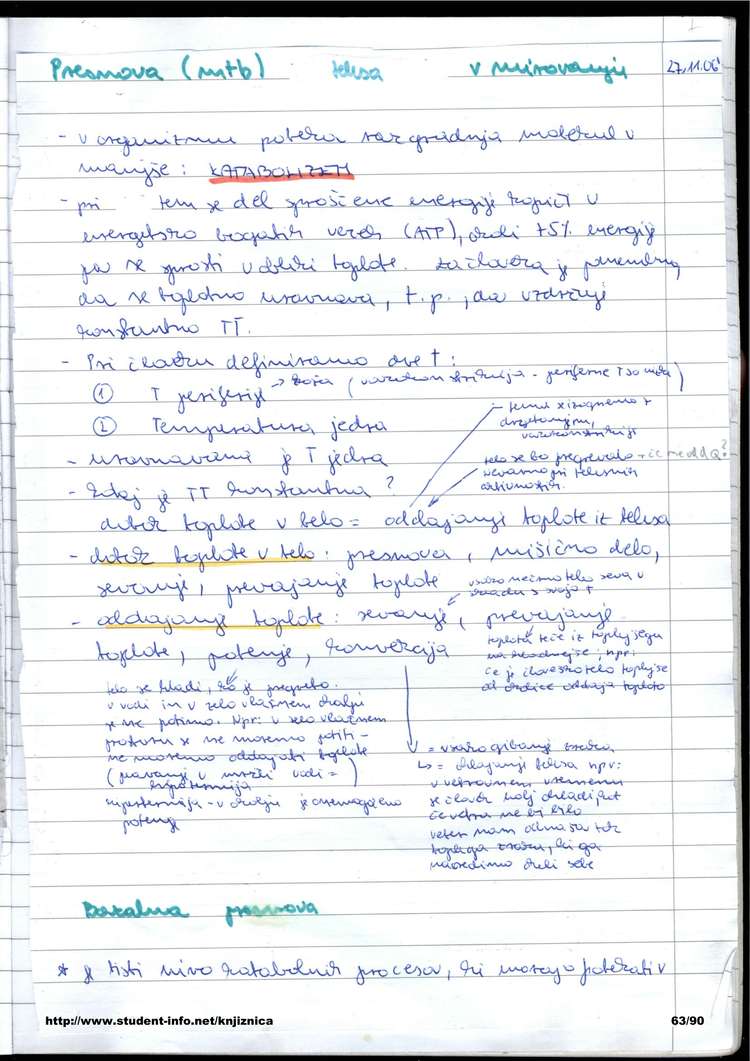 Presnova (mtb) telesa v mirovanju 27.11.06
- v organizmu poteka razgradnja molekul v
manjše : KATABOLIZEM
- pri tem se del sproščene energije kopiči v
energetsko bogatih vezeh (ATP), okoli 75% energije
pa se sprosti v obliki toplote. za človeka je pomembno,
da se toplotno uravnava, t.p., da vzdržuje
konstantno TT.
- Pri človeku definiramo dve T :
① T periferije → koža (vazokonstrikcija - periferne T so
② Temperatura jedra
- temu se izognemo z
vazokonstrikcije
- uravnavana je T jedra
telo se bo pregrevalo če ne odda Q?
nevarno pri telesnih
aktivnostih.
- Kdaj je TT konstantna ?
dotok toplote v telo = oddajanju toplote iz telesa
- dotok toplote v telo : presnova, mišično delo,
sevanje, prevajanje toplote
vsako telo seva v
skladu s svojo T
- oddajanje toplote : sevanje, prevajanje
toplote, potenje, konvekcija
toplota teče iz toplejšega
na hladnejše ; npr.:
če je človeško telo toplejše
od okolice oddaja toploto
telo se hladi, ko je pregreto.
v vodi in v zelo vlažnem okolju
se ne potimo. Npr: v zelo vlažnem
prostoru se ne moremo potiti -
ne moremo oddajati toplote
(plavanje v mrzli vodi =
hipotermija)
hipertermija - v okolju je onemogočeno
potenje
= vsako gibanje zraka
↳ = ohlajanje telesa npr:
v vetrovnem vremenu
se človek bolj ohladi, kot
če vetra ne bi bilo
veter nam odnaša tok
toplega zraka, ki ga
naredimo okoli sebe
Bazalna presnova
* je tisti nivo katabolnih procesov, ki morajo potekati v
http://www.student-info.net/knjiznica 63/90